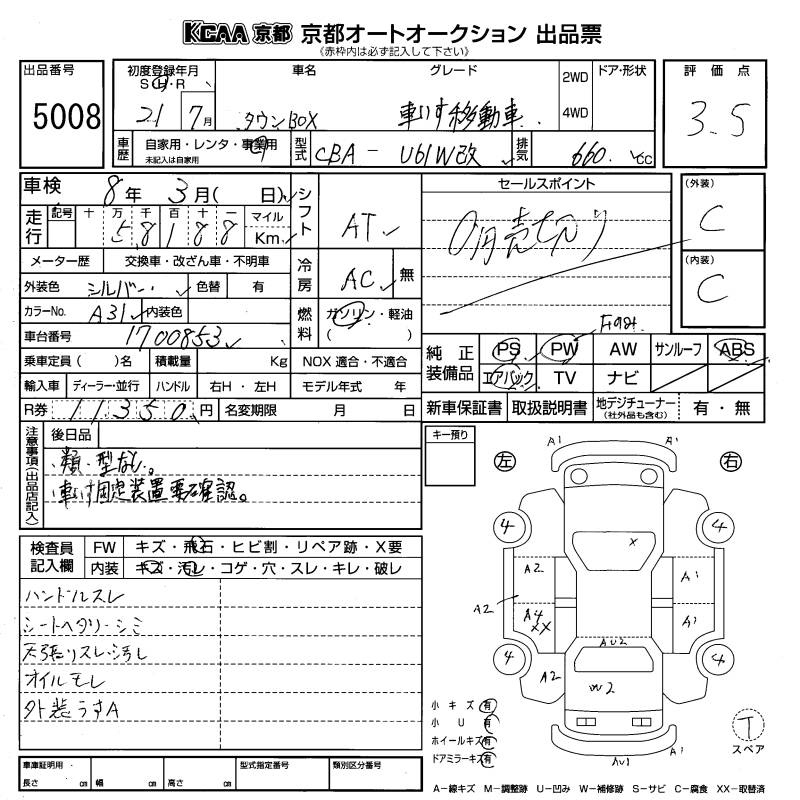 KCAA 京都 京都オートオークション 出品票
《赤枠内は必ず記入して下さい》
出品番号
5008
初度登録年月
S・H・R
21 7月
車名
タウンBOX
グレード
車いす移動車
2WD
4WD
ドア・形状
評価点
3.5
車歴
自家用・レンタ・事業用
未記入は自家用
型式
CBA - U61W改
排気
660 cc
車検
8年 3月( 日)
走行
記号 十 万 千 百 十 一
58188
マイル
Km
シフト
AT
セールスポイント
0円売切り
(外装)
C
(内装)
C
メーター歴
交換車・改ざん車・不明車
冷房
AC 無
外装色
シルバー
色替 有
カラーNo.
A31
内装色
燃料
ガソリン・軽油
( )
車台番号
1700853
乗車定員( )名
積載量 Kg
NOX 適合・不適合
輸入車
ディーラー・並行
ハンドル
右H・左H
モデル年式 年
R券
11350円
名変期限 月 日
純正装備品
PS PW AW サンルーフ ABS
エアバック TV ナビ
新車保証書
取扱説明書
地デジチューナー
(社外品も含む)
有・無
注意事項(出品店記入)
後日品
類・型なし。
車いす固定装置要確認。
キー預り
左
右
検査員記入欄
FW
キズ・飛石・ヒビ割・リペア跡・X要
内装
キズ・汚レ・コゲ・穴・スレ・キレ・破レ
ハンドルスレ
シートヘタリ・シミ
天張りスレ・汚レ
オイルモレ
外装うすA
A1 A1
4 4
X
A2 A1
A2
A4
XX
A1
AU2
4 4
A2
W2
AU1 A1
小キズ 有
小U 有
ホイールキズ 有
ドアミラーキズ 有
T
スペア
車庫証明用・
長さ cm
幅 cm
高さ cm
型式指定番号
類別区分番号
A-線キズ M-調整跡 U-凹み W-補修跡 S-サビ C-腐食 XX-取替済